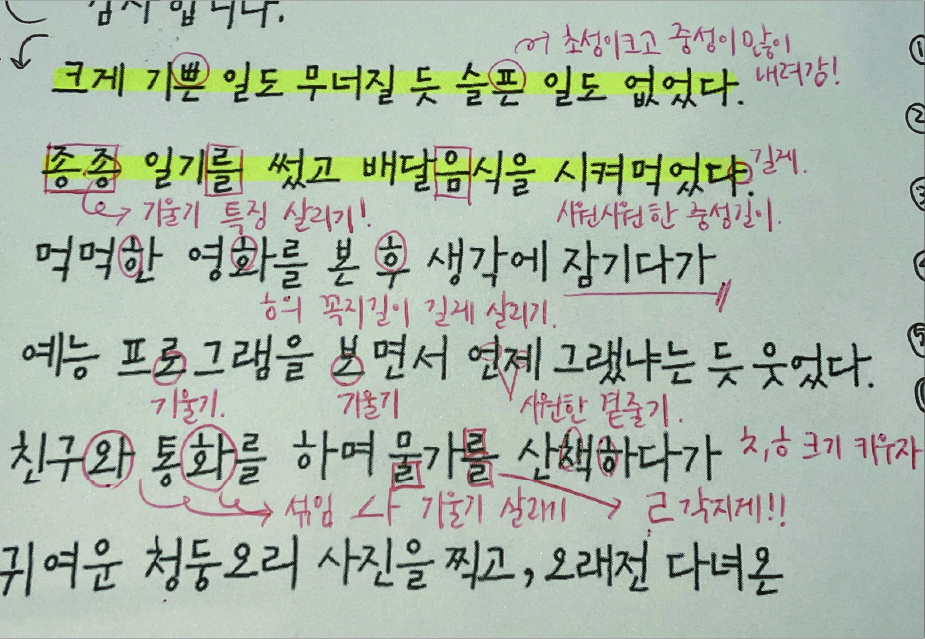 감사합니다.
어 초성이크고 중성이 많이
내려감!
크게 기쁜 일도 무너질 듯 슬픈 일도 없었다.
①
②
종종 일기를 썼고 배달음식을 시켜먹었다.
길게.
③
기울기 특징 살리기!
시원시원한 중성길이.
먹먹한 영화를 본 후 생각에 잠기다가
ㅎ의 꼭지길이 길게 살리기.
예능 프로그램을 보면서 언제 그랬냐는 듯 웃었다.
⑤
기울기.
기울기
시원한 곁줄기.
친구와 통화를 하며 물가를 산책하다가
ㅊ,ㅎ 크기 키우자
섞임
기울기 살리기
ㄹ 각지게!!
귀여운 청둥오리 사진을 찍고, 오래전 다녀온